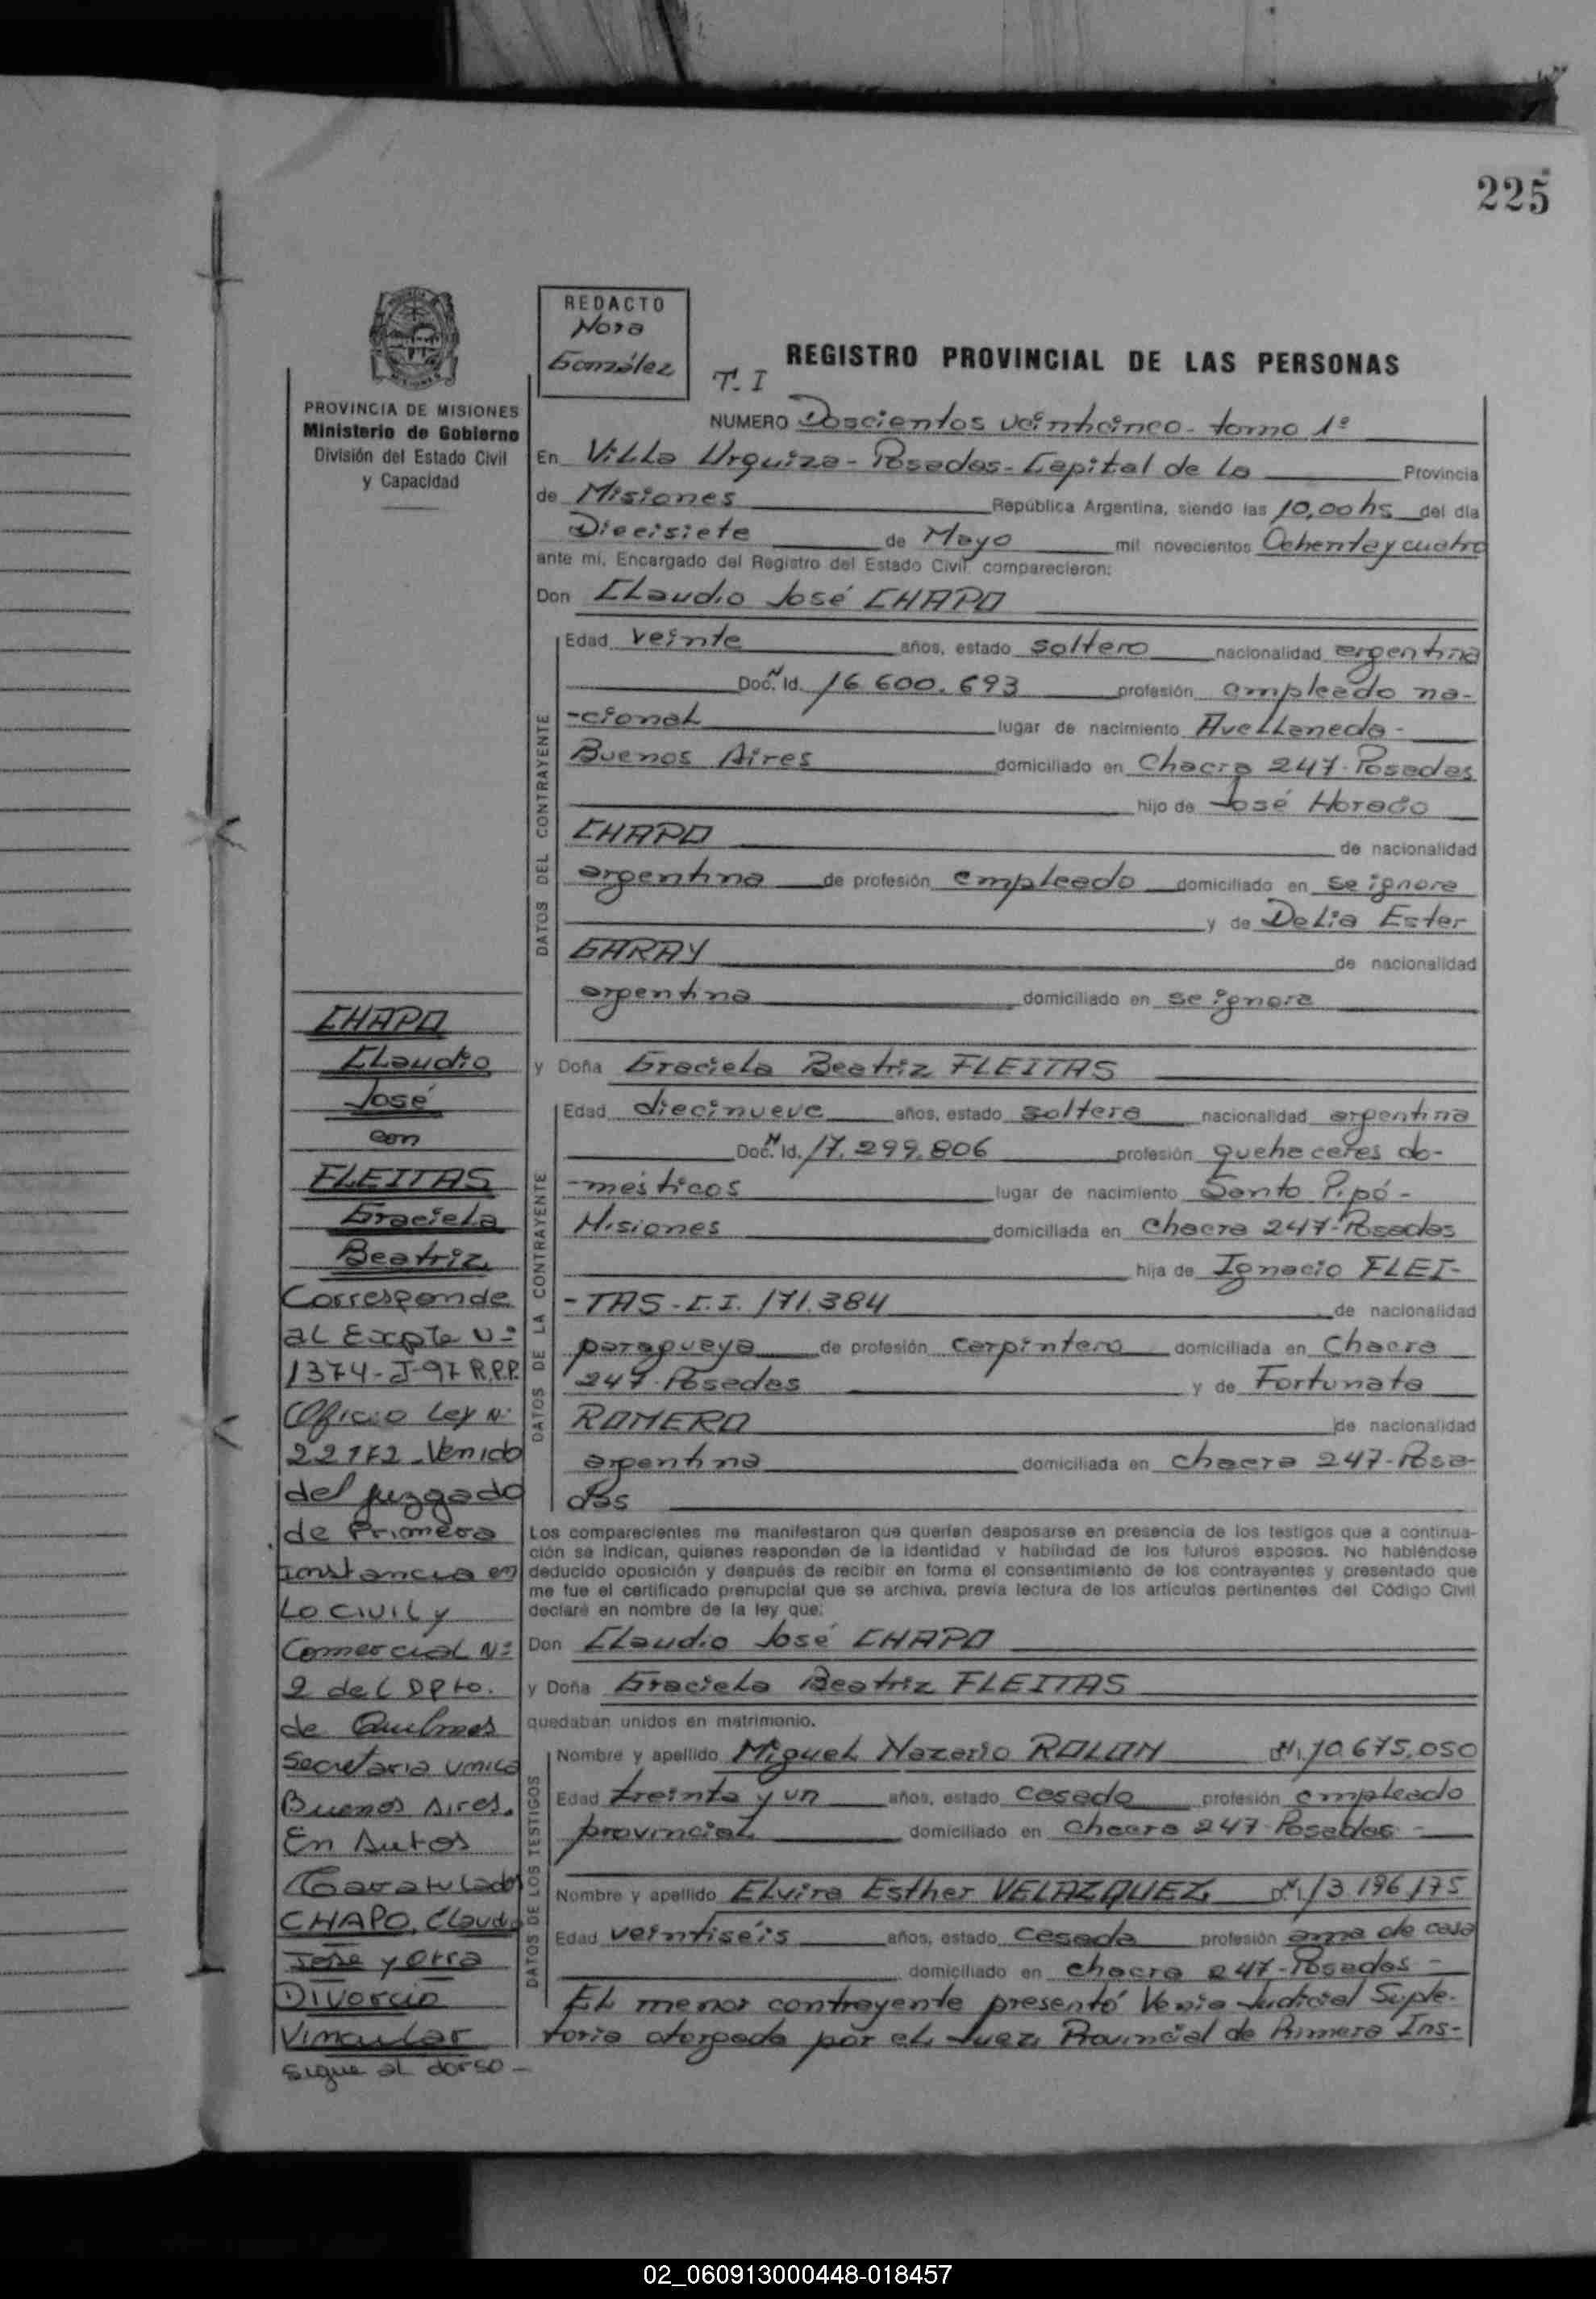 225
REDACTO
Nora
González
T. I
REGISTRO PROVINCIAL DE LAS PERSONAS
PROVINCIA DE MISIONES
Ministerio de Gobierno
División del Estado Civil
y Capacidad
NUMERO Doscientos veinticinco - tomo 1º
En Villa Urquiza - Posadas - Capital de la Provincia
de Misiones República Argentina, siendo las 10,00 hs del día
Diecisiete de Mayo mil novecientos Ochenta y cuatro
ante mí, Encargado del Registro del Estado Civil comparecieron:
Don Claudio José CHAPO
DATOS DEL CONTRAYENTE
Edad veinte años, estado soltero nacionalidad argentina
Doc. N Id. 16.600.693 profesión empleado na-
-cional lugar de nacimiento Avellaneda -
Buenos Aires domiciliado en Chacra 247 - Posadas
hijo de José Horacio
CHAPO de nacionalidad
argentina de profesión empleado domiciliado en se ignora
y de Delia Ester
GARAY de nacionalidad
argentina domiciliado en se ignora
y Doña Graciela Beatriz FLEITAS
DATOS DE LA CONTRAYENTE
Edad diecinueve años, estado soltera nacionalidad argentina
Doc. N Id. 17.299.806 profesión quehaceres do-
-mésticos lugar de nacimiento Santo Pipó -
Misiones domiciliada en Chacra 247 - Posadas
hija de Ignacio FLEI-
-TAS - C.I. 171.384 de nacionalidad
paraguaya de profesión carpintero domiciliada en Chacra
247 - Posadas y de Fortunata
ROMERO de nacionalidad
argentina domiciliada en chacra 247 - Posa-
das
Los comparecientes me manifestaron que querían desposarse en presencia de los testigos que a continua-
ción se indican, quienes responden de la identidad y habilidad de los futuros esposos. No habiéndose
deducido oposición y después de recibir en forma el consentimiento de los contrayentes y presentado que
me fue el certificado prenupcial que se archiva, previa lectura de los artículos pertinentes del Código Civil
declaré en nombre de la ley que:
Don Claudio José CHAPO
y Doña Graciela Beatriz FLEITAS
quedaban unidos en matrimonio.
DATOS DE LOS TESTIGOS
Nombre y apellido Miguel Nazario ROLON DNI. 10.675.050
Edad treinta y un años, estado casado profesión empleado
provincial domiciliado en Chacra 247 - Posadas -
Nombre y apellido Elvira Esther VELAZQUEZ DNI. 13.196.175
Edad veintiséis años, estado casada profesión ama de casa
domiciliado en chacra 247 - Posadas -
El menor contrayente presentó Venia Judicial Suple-
toria otorgada por el Juez Provincial de Primera Ins-
CHAPO
Claudio
José
con
FLEITAS
Graciela
Beatriz
Corresponde
al Expte Nº
1374-J-97 R.P.P.
Oficio Ley Nº
22172 - Venido
del juzgado
de Primera
instancia en
Lo civil y
Comercial Nº
2 del Dpto.
de Quilmes
Secretaria unica
Buenos Aires.
En Autos
Caratulados
CHAPO, Claudio
Jose y otra
Divorcio
Vincular
sigue al dorso -
02_060913000448-018457